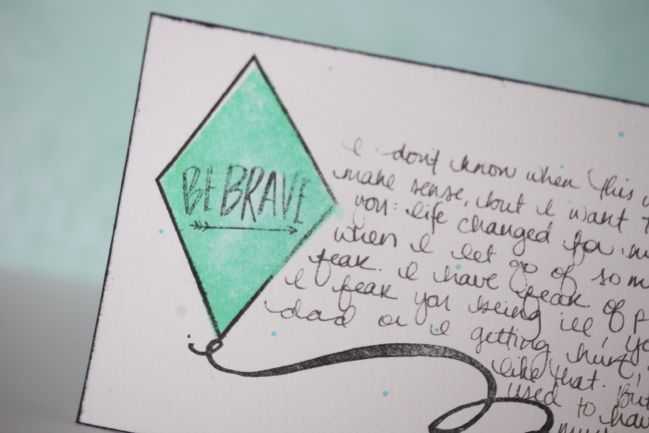 BE BRAVE
I don't know when this
make sense, but I want
you: life changed for
when I let go of som
fear. I have fear of p
I fear you being ill, y
dad or I getting hurt,
like that. But
used to hav